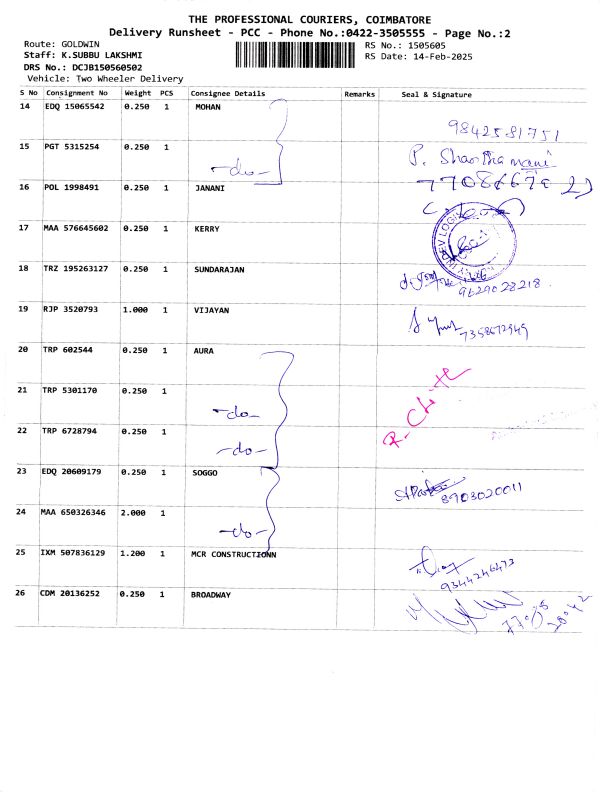 THE PROFESSIONAL COURIERS, COIMBATORE
Delivery Runsheet - PCC - Phone No.:0422-3505555 - Page No.:2
Route: GOLDWIN RS No.: 1505605
Staff: K.SUBBU LAKSHMI RS Date: 14-Feb-2025
DRS No.: DCJB150560502
Vehicle: Two Wheeler Delivery
S No Consignment No Weight PCS Consignee Details Remarks Seal & Signature
14 EDQ 15065542 0.250 1 MOHAN
9842581751
15 PGT 5315254 0.250 1 -do-
P. Sharthamani
16 POL 1998491 0.250 1 JANANI
17 MAA 576645602 0.250 1 KERRY
18 TRZ 195263127 0.250 1 SUNDARAJAN
9629028218
19 RJP 3520793 1.000 1 VIJAYAN
7358672949
20 TRP 602544 0.250 1 AURA
21 TRP 5301170 0.250 1 -do-
22 TRP 6728794 0.250 1 -do-
23 EDQ 20609179 0.250 1 SOGGO
8903020011
24 MAA 650326346 2.000 1 -do-
25 IXM 507836129 1.200 1 MCR CONSTRUCTIONN
9344246473
26 CDM 20136252 0.250 1 BROADWAY